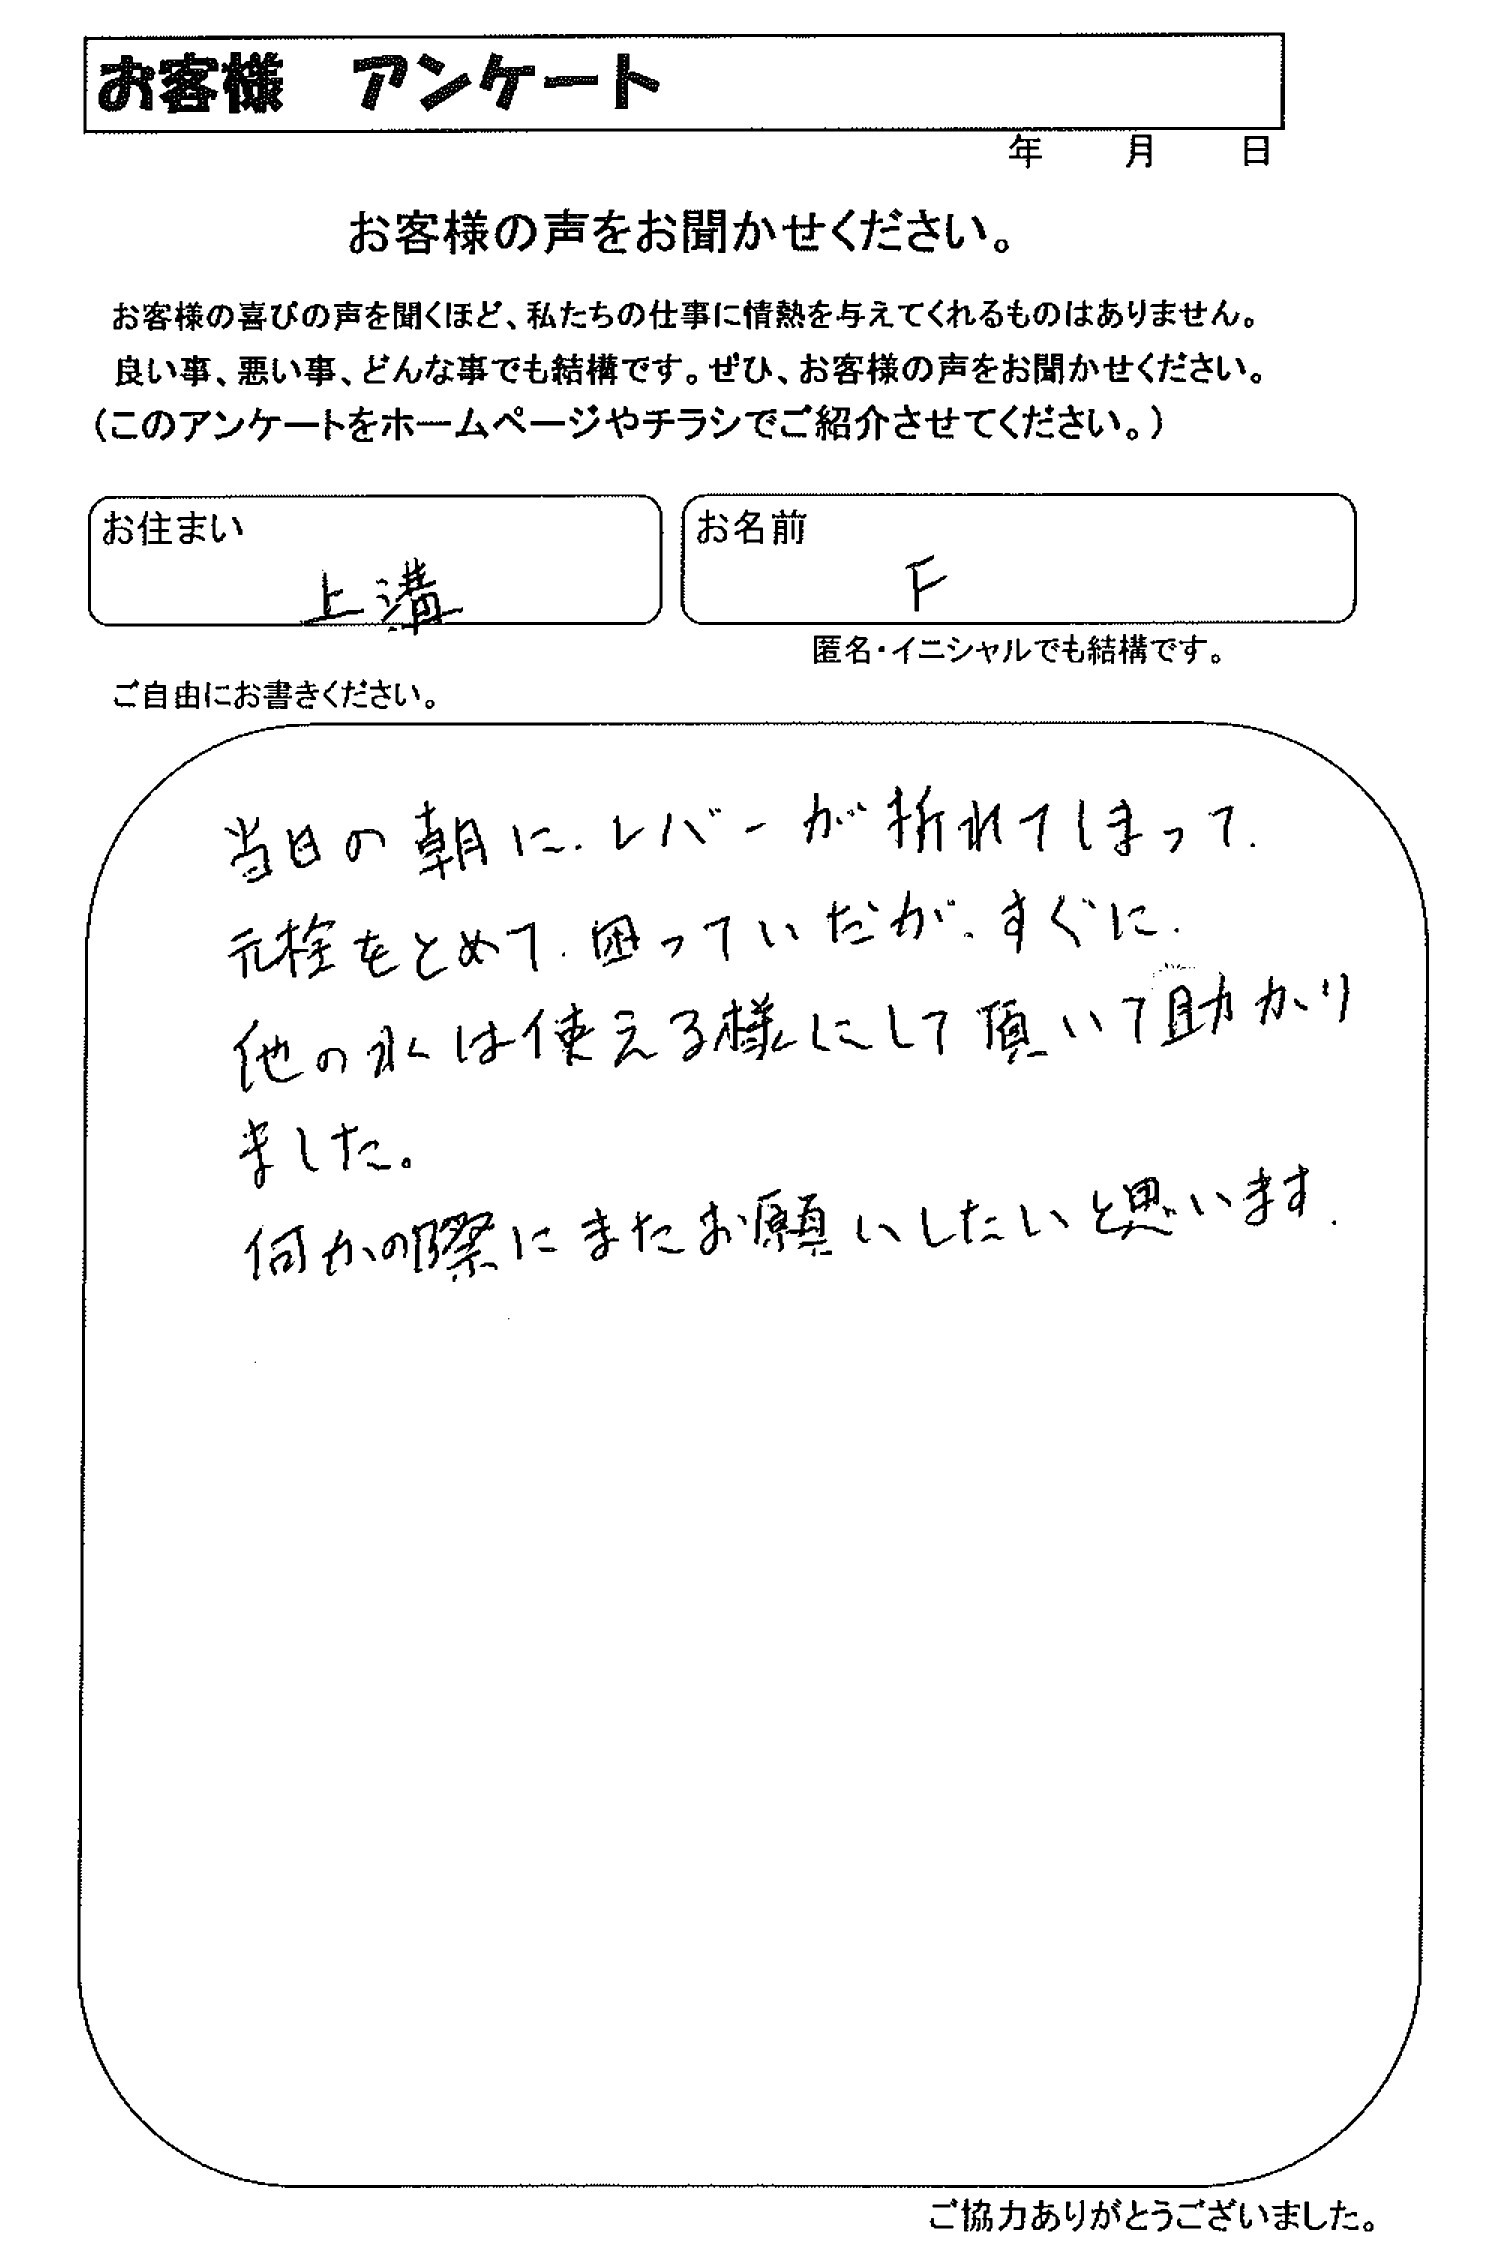 お客様 アンケート
年 月 日
お客様の声をお聞かせください。
お客様の喜びの声を聞くほど、私たちの仕事に情熱を与えてくれるものはありません。
良い事、悪い事、どんな事でも結構です。ぜひ、お客様の声をお聞かせください。
(このアンケートをホームページやチラシでご紹介させてください。)
お住まい
上溝
お名前
F
匿名・イニシャルでも結構です。
ご自由にお書きください。
当日の朝に、レバーが折れてしまって、
元栓をとめて、困っていだが、すぐに、
他の水は使える様にして頂いて助かり
ました。
何かの際にまたお願いしたいと思います.
ご協力ありがとうございました。